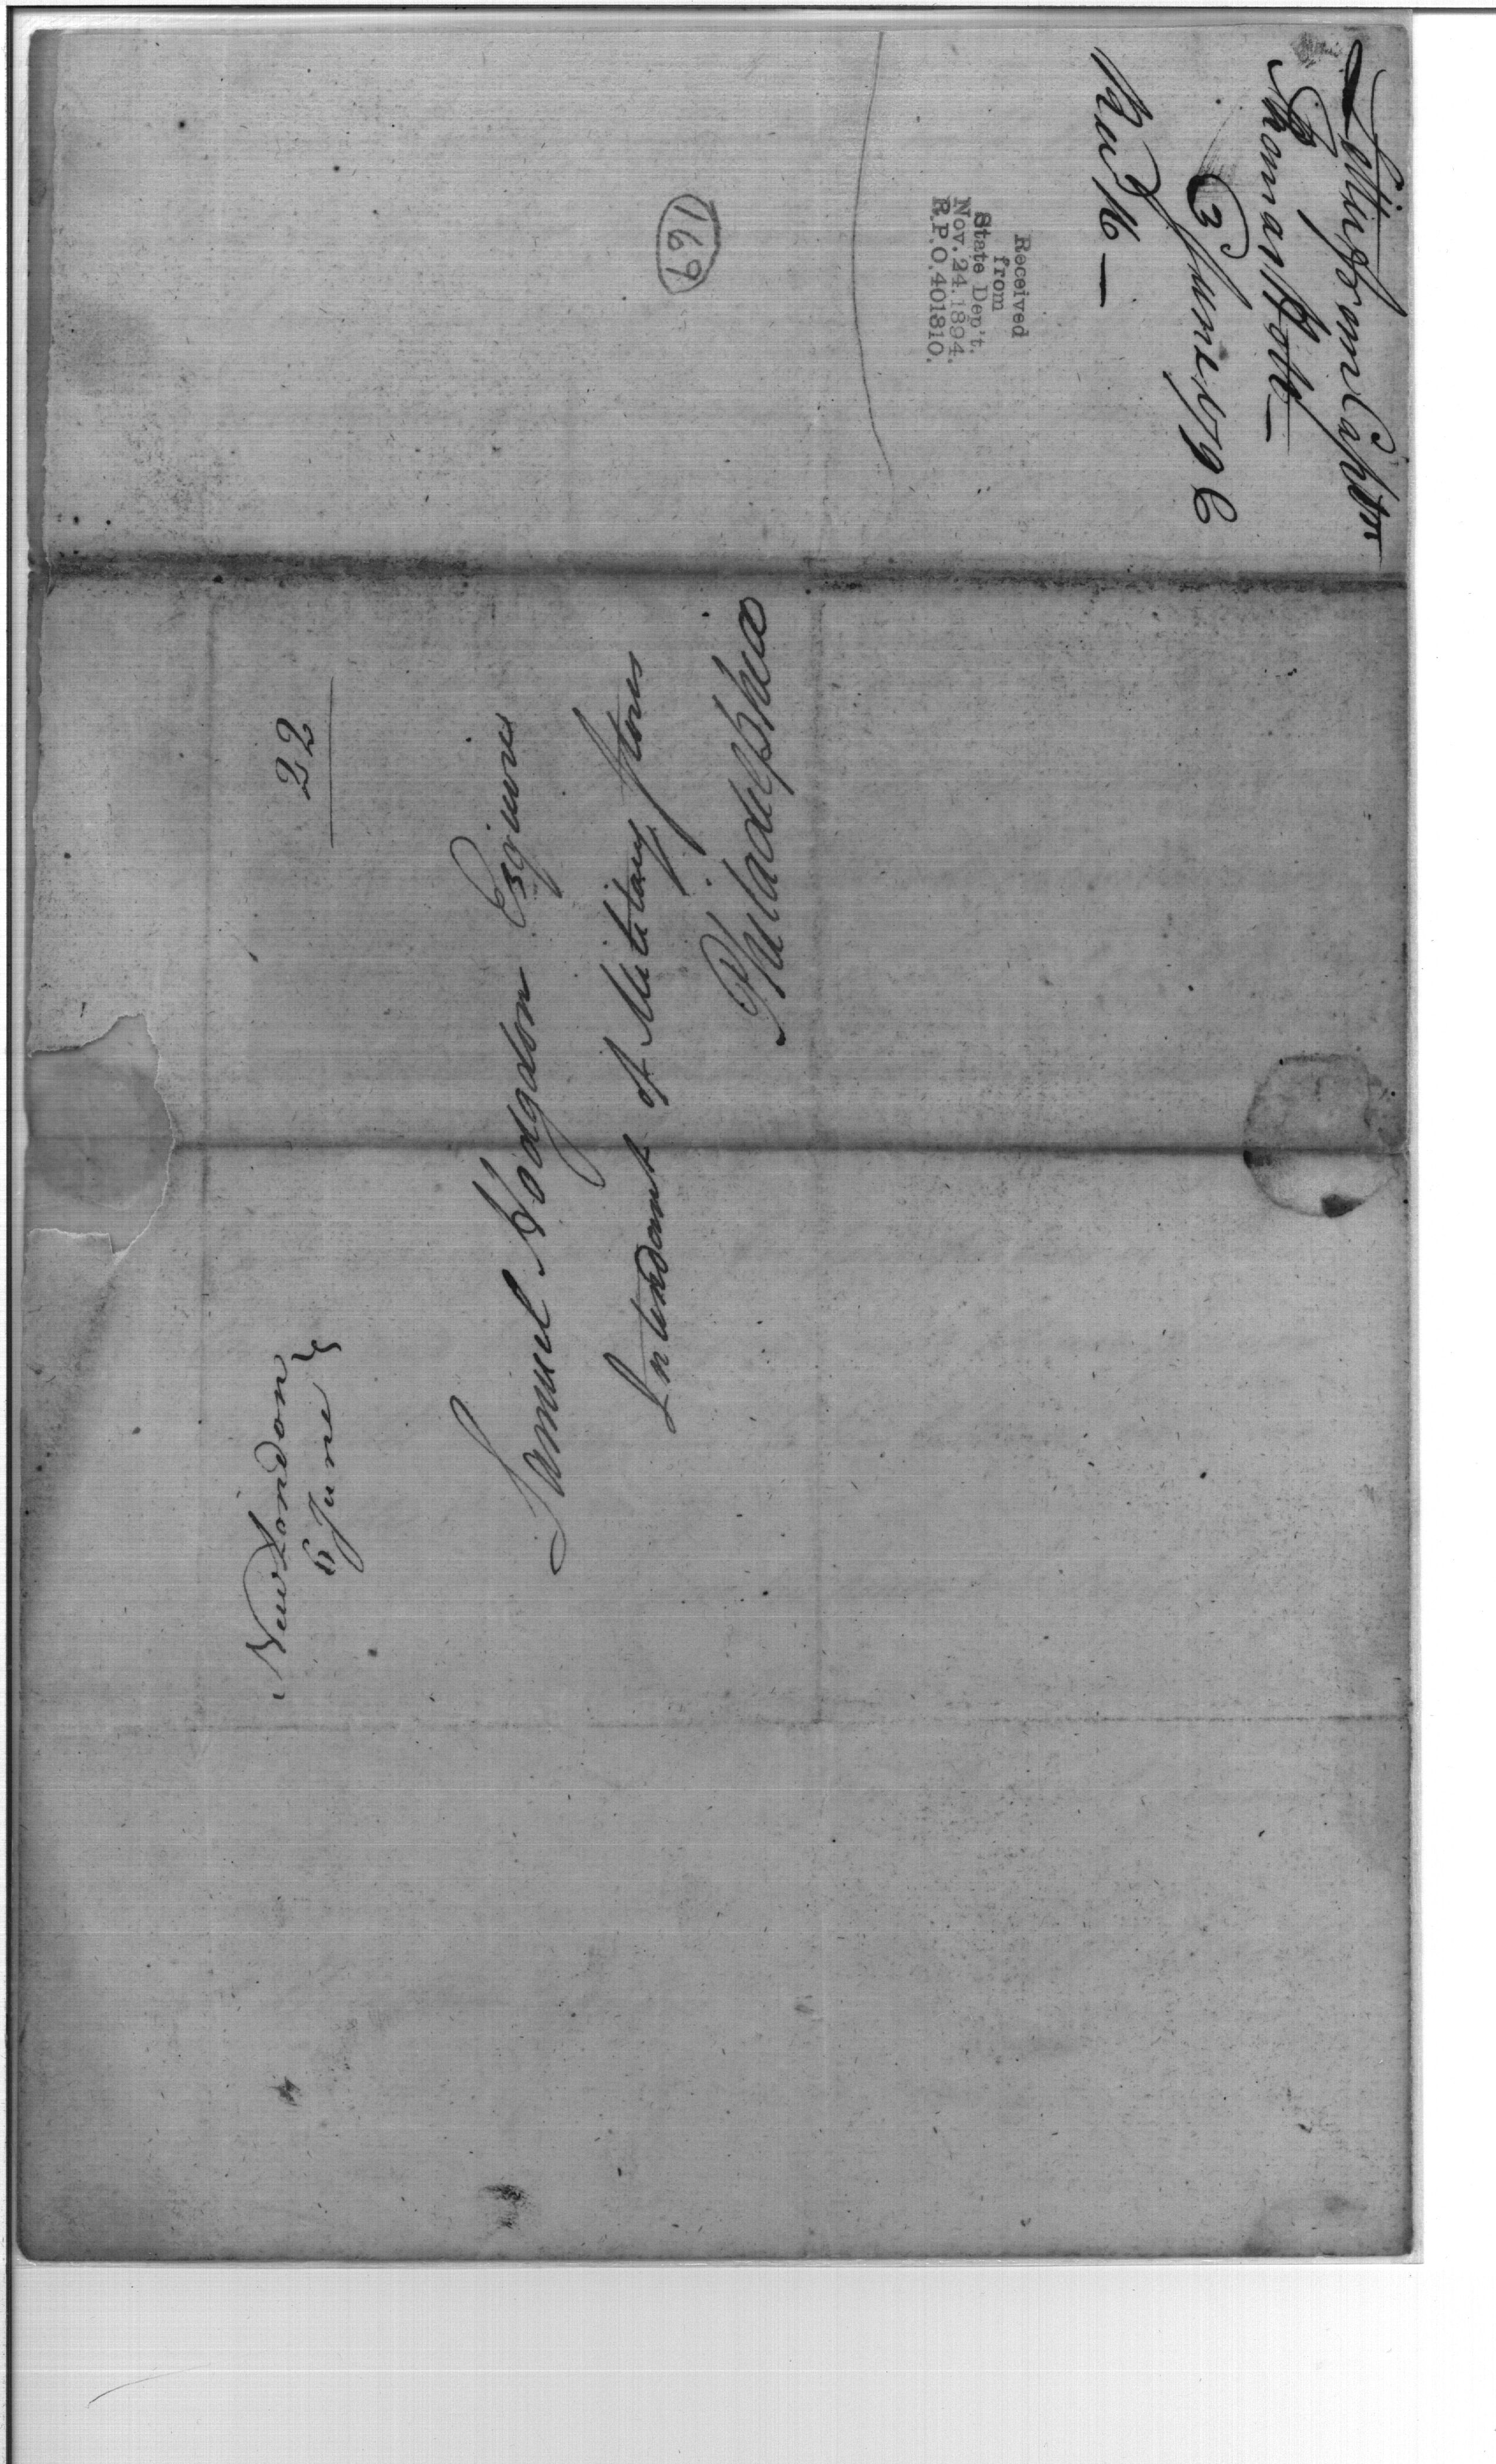 New London
5 June
22
Samuel Hodgdon Esquire
Intendant of Military Stores
Philadelphia
Letter from Captn
Thomas Holt—
3 June 1796
Received
from
State Dep't.
Nov. 24. 1894.
R.P.O. 401810.
169